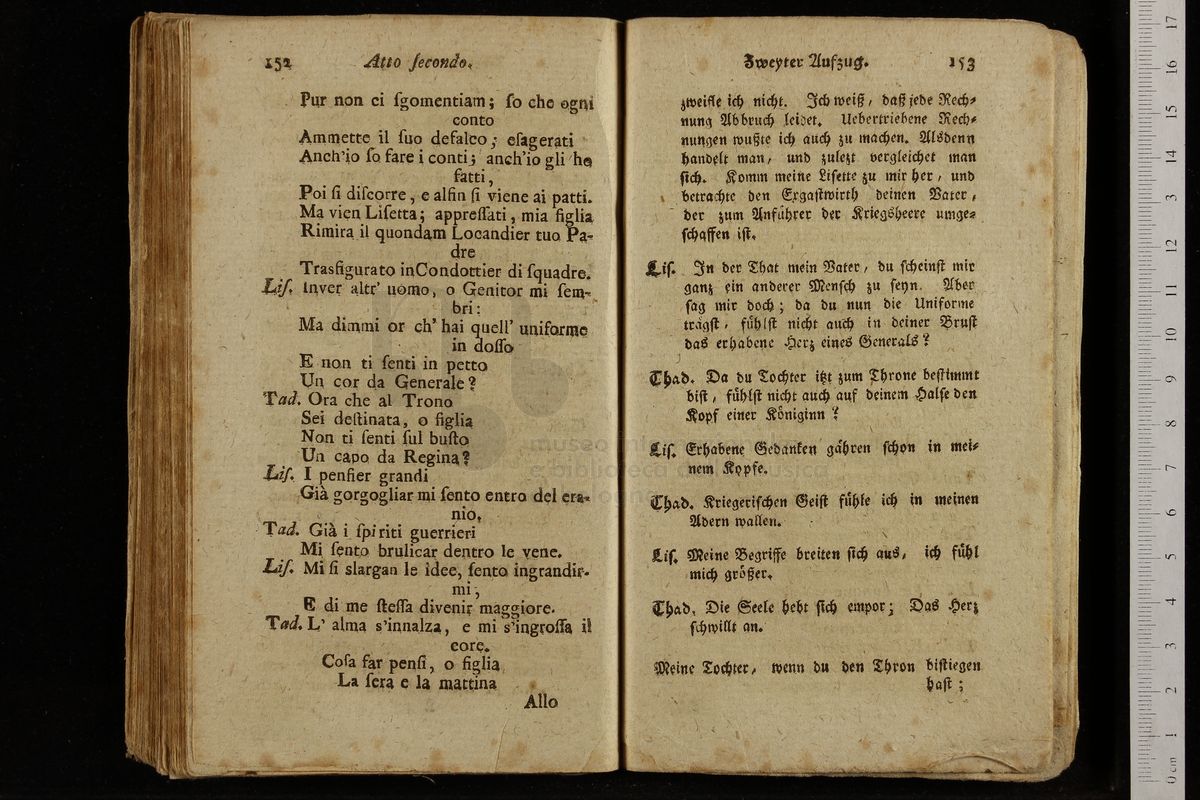 152 Atto ſecondo.
Pur non ci ſgomentiam; ſo che ogni
conto
Ammette il ſuo defalco; eſagerati
Anch'io ſo fare i conti; anch'io gli ho
fatti,
Poi ſi diſcorre, e alfin ſi viene ai patti.
Ma vien Liſetta; appreſſati, mia figlia
Rimira il quondam Locandier tuo Pa-
dre
Trasfigurato inCondottier di ſquadre.
Liſ. Inver altr' uomo, o Genitor mi ſem-
bri:
Ma dimmi or ch' hai quell' uniforme
in doſſo
E non ti ſenti in petto
Un cor da Generale?
Tad. Ora che al Trono
Sei deſtinata, o figlia
Non ti ſenti ſul buſto
Un capo da Regina?
Liſ. I penſier grandi
Già gorgogliar mi ſento entro del cra-
nio,
Tad. Già i ſpiriti guerrieri
Mi ſento brulicar dentro le vene.
Liſ. Mi ſi slargan le idee, ſento ingrandir-
mi,
E di me ſteſſa divenir maggiore.
Tad. L' alma s'innalza, e mi s'ingroſſa il
core.
Coſa far penſi, o figlia
La ſera e la mattina
Allo
Zweyter Aufzug. 153
zweifle ich nicht. Ich weiß, daß jede Rech-
nung Abbruch leidet. Uebertriebene Rech-
nungen wußte ich auch zu machen. Alsdenn
handelt man, und zulezt vergleichet man
ſich. Komm meine Liſette zu mir her, und
betrachte den Exgaſtwirth deinen Vater,
der zum Anführer der Kriegsheere umge-
ſchaffen iſt.
Liſ. In der That mein Vater, du ſcheinſt mir
ganz ein anderer Menſch zu ſeyn. Aber
ſag mir doch; da du nun die Uniforme
trägſt, fühlſt nicht auch in deiner Bruſt
das erhabene Herz eines Generals?
Thad. Da du Tochter itzt zum Throne beſtimmt
biſt, fühlſt nicht auch auf deinem Halſe den
Kopf einer Königinn?
Liſ. Erhabene Gedanken gähren ſchon in mei-
nem Kopfe.
Thad. Kriegeriſchen Geiſt fühle ich in meinen
Adern wallen.
Liſ. Meine Begriffe breiten ſich aus, ich fühl
mich größer.
Thad. Die Seele hebt ſich empor; Das Herz
ſchwillt an.
Meine Tochter, wenn du den Thron biſtiegen
haſt;